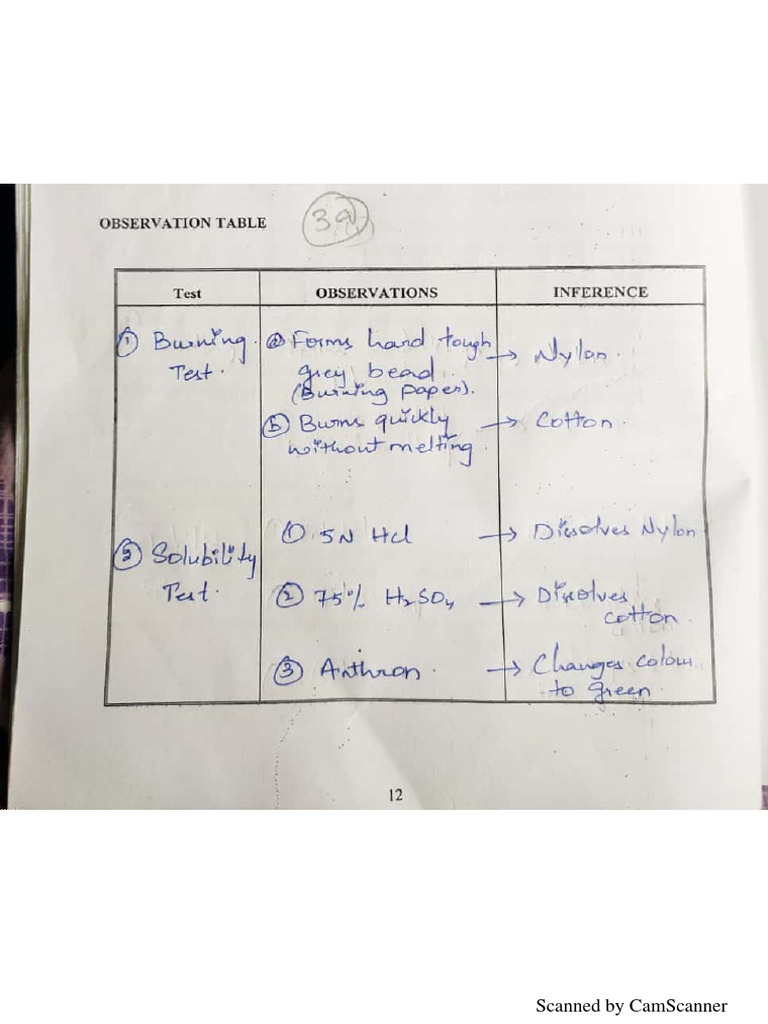 OBSERVATION TABLE
3a
Test OBSERVATIONS INFERENCE
① Burning Test.
ⓐ Forms hard tough
grey bead.
(Burning paper).
→ Nylon.
ⓑ Burns quickly
without melting.
→ Cotton.
② Solubility
Test.
① 5N Hcl
→ Dissolves Nylon
② 75% H₂SO₄
→ Dissolves
cotton.
③ Anthron.
→ Changes colour
to green.
12
Scanned by CamScanner